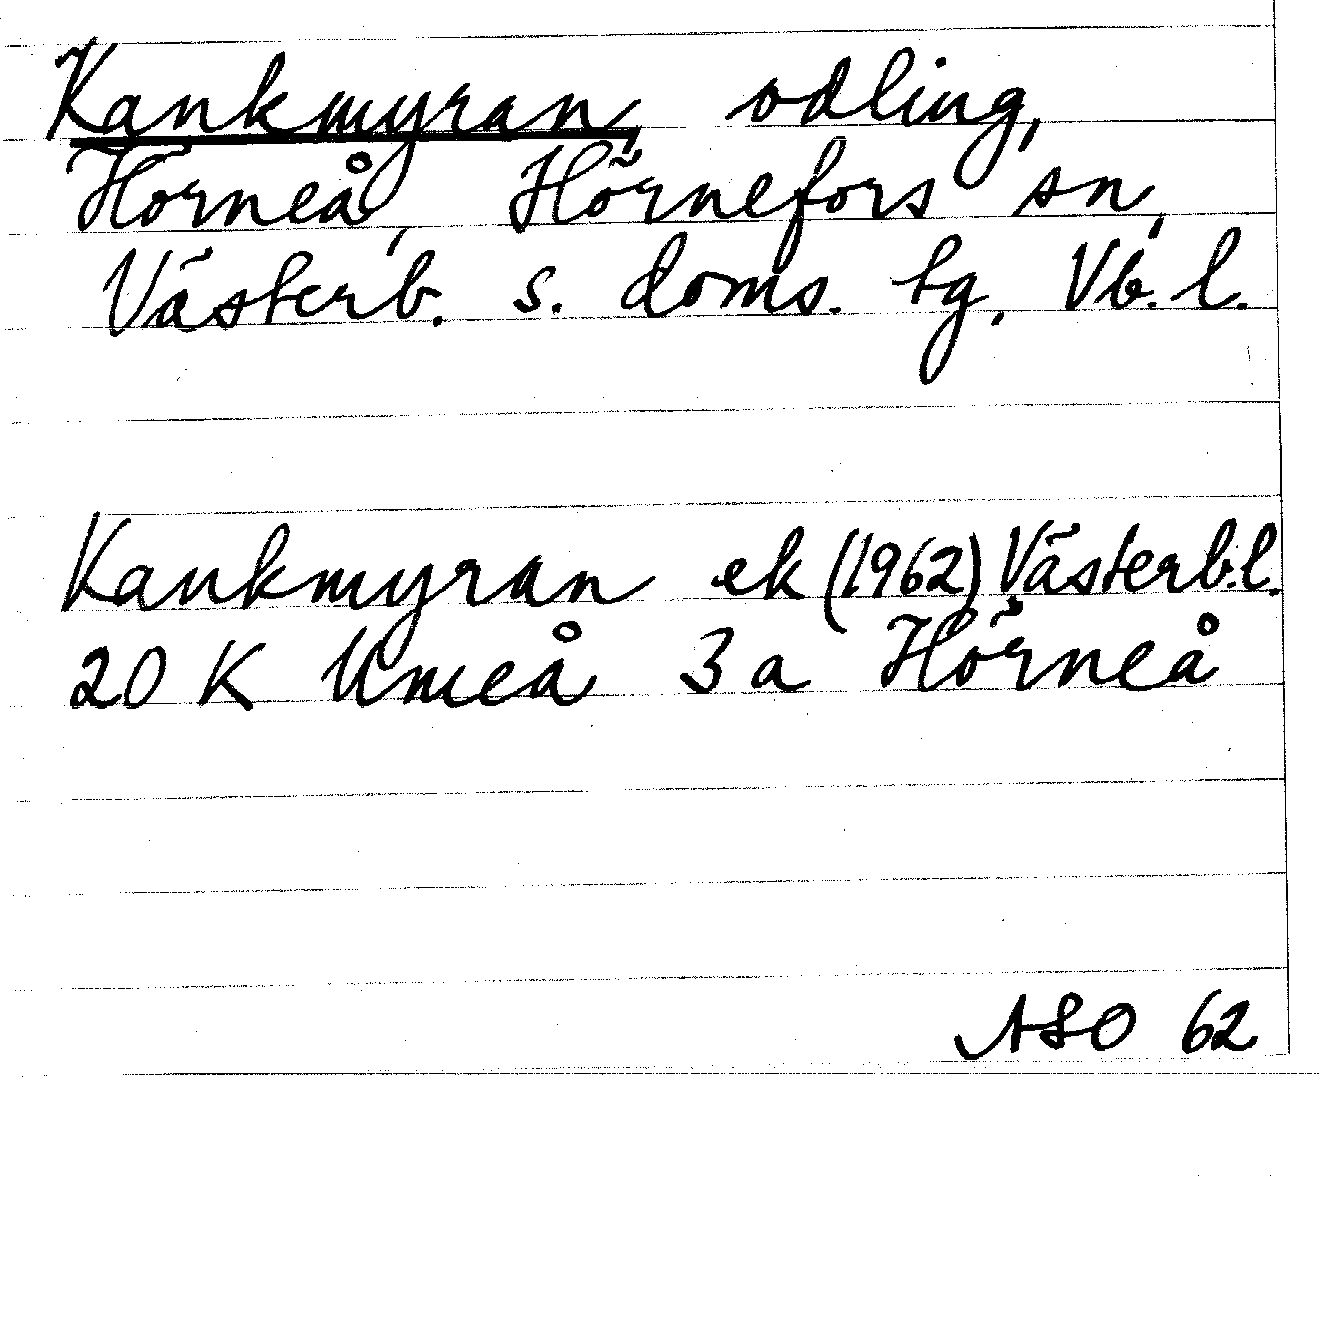 Kankmyran, odling,
Hörneå, Hörnefors sn,
Västerb. s. doms. tg, Vb. l.
Kankmyran ek (1962) Västerb.l.
20 K Umeå 3 a Hörneå
ASO 62